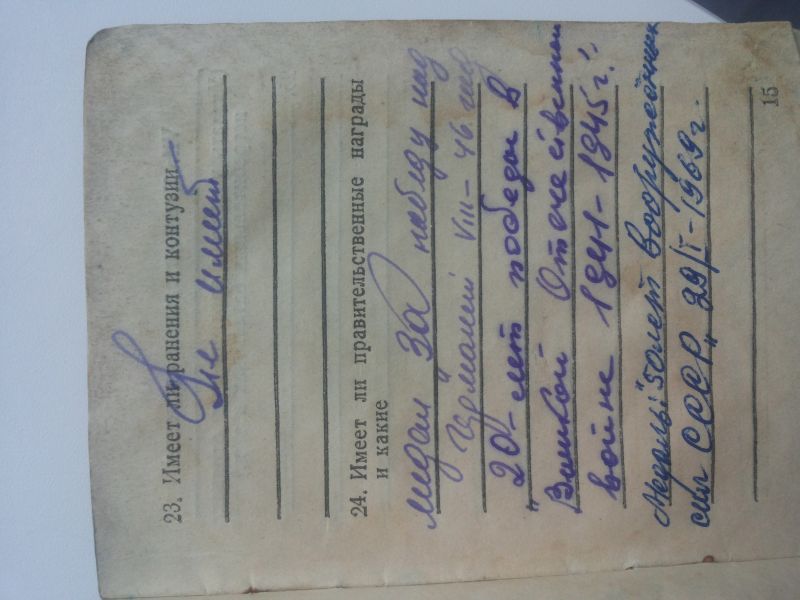 23. Имеет ли ранения и контузии
Не имеет
24. Имеет ли правительственные награды
и какие
медаль „За победу над
Германией VIII–46 год
„20-лет победы в
Великой Отечественной
войне 1941–1945 г."
Медаль: „50 лет вооруженных
сил СССР" 29/I–1969 г.
15